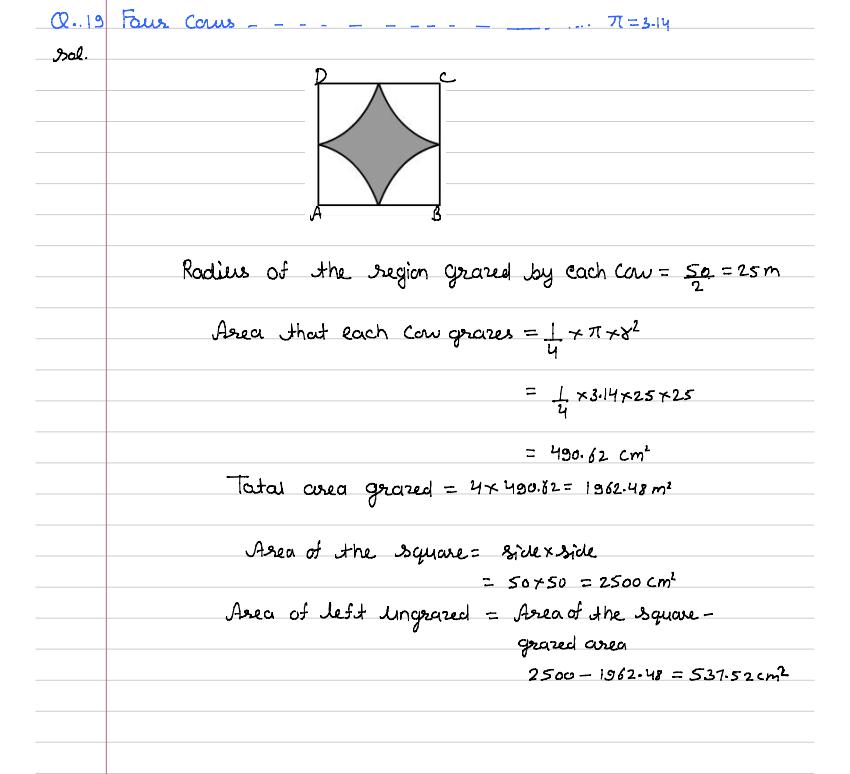 Q..19 Four Cows - - - - - - - - - - - ... π=3.14
sol.
D C
A B
Radius of the region grazed by each cow = 50/2 = 25 m
Area that each cow grazes = 1/4 × π × r²
= 1/4 × 3.14 × 25 × 25
= 490.62 cm²
Total area grazed = 4 × 490.62 = 1962.48 m²
Area of the square = side × side
= 50 × 50 = 2500 cm²
Area of left ungrazed = Area of the square -
grazed area
2500 - 1962.48 = 537.52 cm²